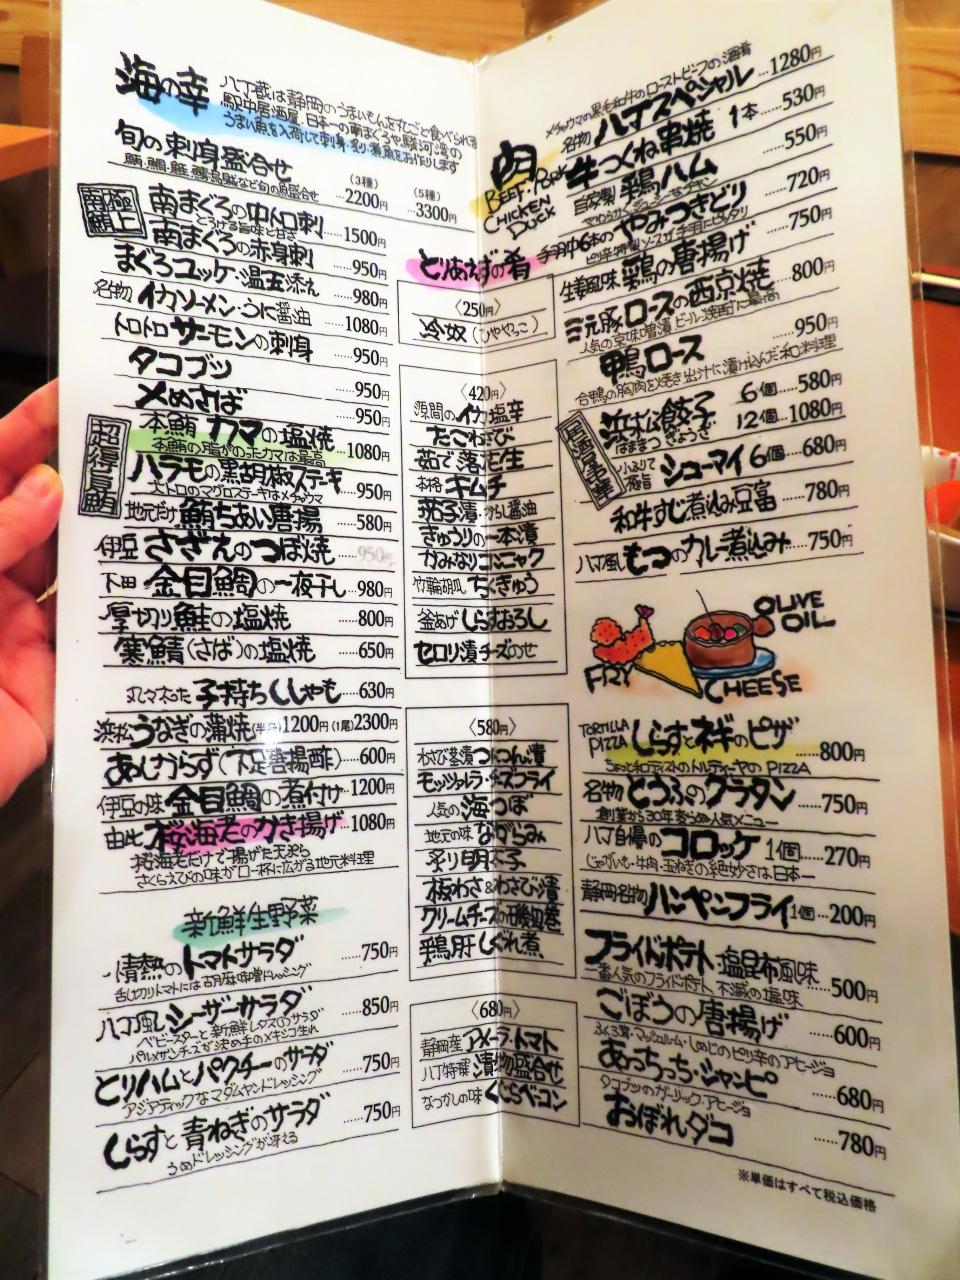 海の幸
八丁蔵は静岡のうまいもん丸ごと食べられる
駅中居酒屋。日本一の南まぐろや駿河湾の
うまい魚を入荷して刺身・炙り・煮魚をお作りします
旬の刺身盛合せ
(3種) …2200円
(5種) …3300円
極上
南鮪
南まぐろの中トロ刺 …1500円
とろける旨味と甘さ
南まぐろの赤身刺 ……950円
まぐろユッケ・温玉添え …980円
名物 イカソーメン・うに醤油 …1080円
トロトロサーモンの刺身 ……950円
タコブツ ……950円
〆めさば ……950円
超得昌鮪
本鮪カマの塩焼 …1080円
本鮪の脂がのったカマは最高
ハラモの黒胡椒ステーキ …950円
大トロのマグロステーキはメチャウマ
地元だけ 鮪ちあい唐揚 ……580円
伊豆 さざえのつぼ焼 ……950円
下田 金目鯛の一夜干し …980円
厚切り鮭の塩焼 ……800円
寒鯖(さば)の塩焼 ……650円
丸々太った 子持ちししゃも …630円
浜松うなぎの蒲焼 (半身)1200円 (1尾)2300円
あしからず(下足唐揚酢) …600円
伊豆の味 金目鯛の煮付け …1200円
由比 桜海老のかき揚げ …1080円
桜海老だけで揚げた天ぷら
さくらえびの味が口一杯に広がる地元料理
新鮮生野菜
情熱のトマトサラダ ……750円
厚切りトマトには古胡麻味噌ドレッシング
八丁風シーザーサラダ ……850円
ベビースターと新鮮レタスのサラダ
パルメザンチーズが決め手のメキシコ生れ
とりハムとパクチーのサラダ …750円
アジアティックなマダムヤンドレッシング
しらすと青ねぎのサラダ ……750円
うめドレッシングが冴える
とりあえずの肴
〈250円〉
冷奴(ひややっこ)
〈420円〉
源間のイカ塩辛
たこわさび
茹で落花生
本格キムチ
茄子漬からし醤油
きゅうりの一本漬
かみなりコンニャク
竹輪胡瓜 ちくきゅう
釜あげしらすおろし
セロリ漬チーズのせ
〈580円〉
わさび茎漬つんつん漬
モッツァレラ・チーズフライ
人気の海つぼ
地元の味 ながらみ
炙り明太子
板わさ&わさび漬
クリームチーズの磯辺巻
鶏肝しぐれ煮
〈680円〉
静岡産アメーラ・トマト
八丁特撰 漬物盛合せ
なつかしの味 くじらベーコン
肉
BEEF・PORK
CHICKEN
DUCK
メチャウマの黒毛和牛のローストビーフの酒肴
名物 ハ丁スペシャル …1280円
牛つくね串焼 1本…530円
自家製 鶏ハム ……550円
手羽中6本のやみつきどり ……720円
ピリ辛特製ソースが手羽にピッタリ
生姜風味 鶏の唐揚げ ……750円
三元豚ロースの西京焼 ……800円
人気の京味噌漬 ビール・焼酎に最高
鴨ロース ……950円
合鴨の胸肉を焼き出汁に漬け込んだ和料理
居酒屋中華
浜松餃子 6個…580円
はままつぎょうざ 12個…1080円
小ぶりで極旨 シューマイ 6個……680円
和牛すじ煮込み豆富 ……780円
八丁風もつのカレー煮込み ……750円
OLIVE
OIL
FRY
CHEESE
TORTILLA
PIZZA
しらすとネギのピザ ……800円
ちょっと和テイストのトルティーヤのPIZZA
名物 とうふのグラタン ……750円
創業から30年変らぬ人気メニュー
八丁自慢のコロッケ 1個…270円
じゃがいも・牛肉・玉ねぎの絶妙さは日本一
静岡名物 ハンペンフライ 1個…200円
フライドポテト 塩昆布風味 ……500円
一番人気のフライドポテト、不滅の塩味
ごぼうの唐揚げ ……600円
ふくろ茸・マッシュルーム・しめじのピリ辛のアヒージョ
あっちっち・シャンピ ……680円
タコブツのガーリック・アヒージョ
おぼれダコ ……780円
※単価はすべて税込価格